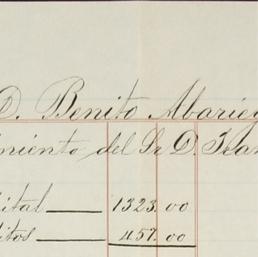 D. Benito Abarie
miento del Sr D. Fran
ital 1323.00
itos 457.00